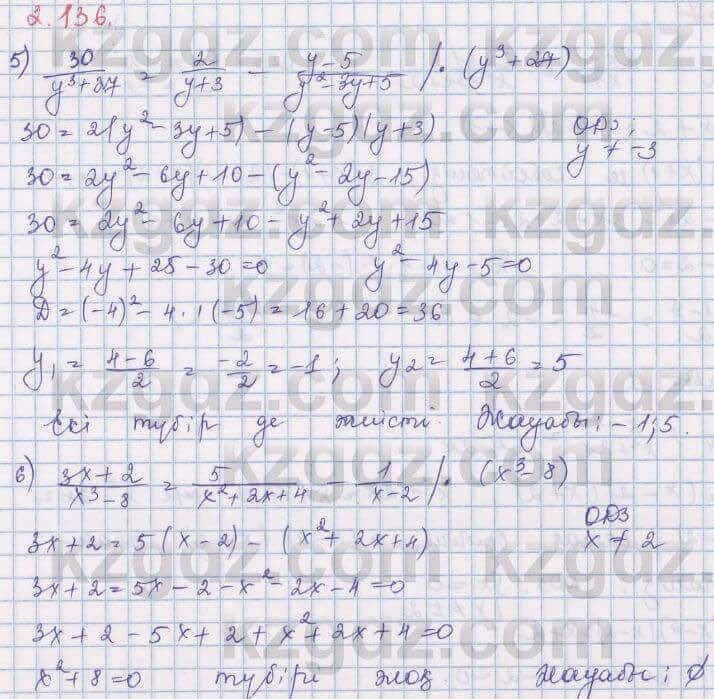 2.136.
5) 30/(y³+27) = 2/(y+3) - (y-5)/(y²-3y+5) /· (y³+27)
30 = 2(y²-3y+5) - (y-5)(y+3) ОДЗ:
30 = 2y²-6y+10-(y²-2y-15) y ≠ -3
30 = 2y²-6y+10-y²+2y+15
y²-4y+25-30=0 y²-4y-5=0
D=(-4)²-4·1(-5)=16+20=36
y₁ = (4-6)/2 = -2/2 = -1; y₂ = (4+6)/2 = 5
Екі түбір де тиісті. Жауабы: -1; 5.
6) (3x+2)/(x³-8) = 5/(x²+2x+4) - 1/(x-2) /· (x³-8)
3x+2=5(x-2)-(x²+2x+4) ОДЗ
3x+2=5x-2-x²-2x-4=0 x ≠ 2
3x+2-5x+2+x²+2x+4=0
x²+8=0 түбірі жоқ Жауабы: ∅
kzgdz.com